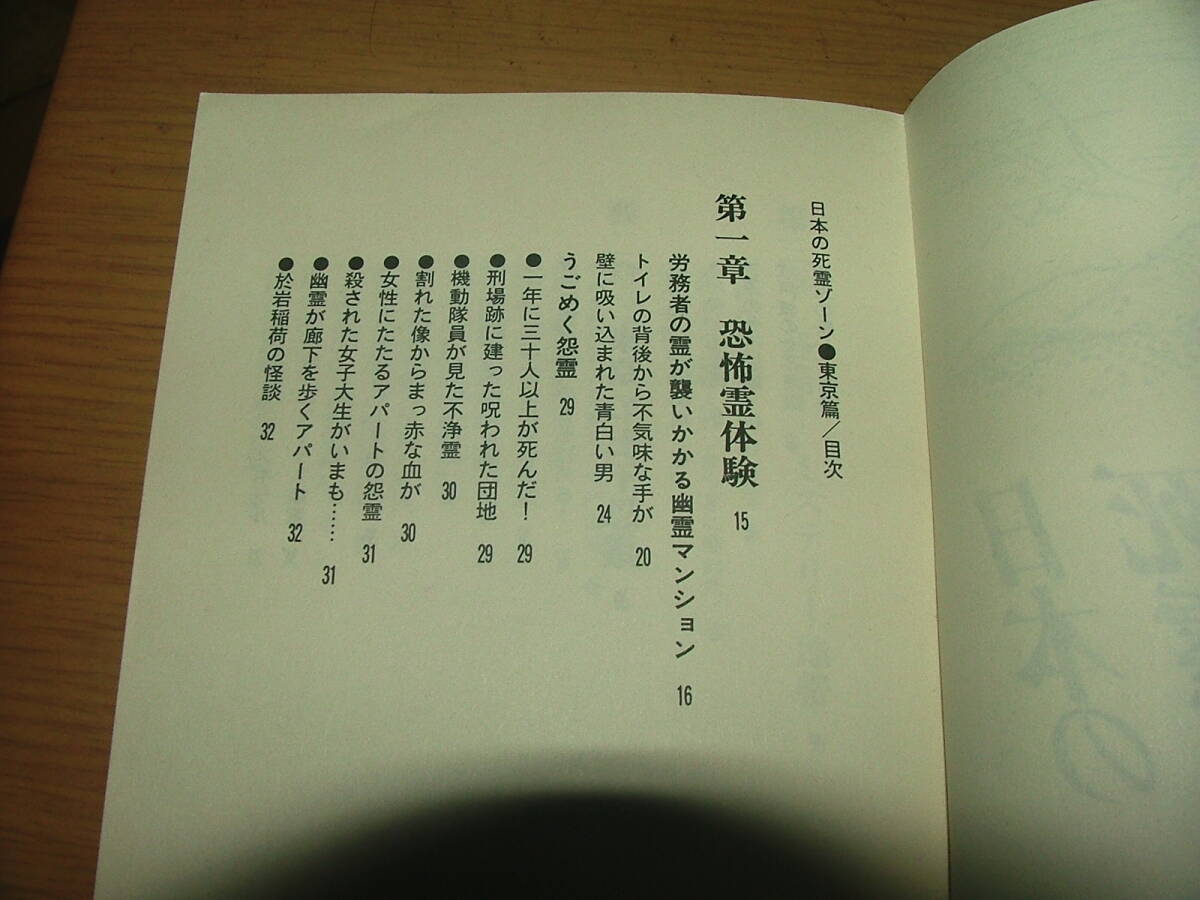 日本の死霊ゾーン●東京篇／目次
第一章 恐怖霊体験 15
労務者の霊が襲いかかる幽霊マンション 16
トイレの背後から不気味な手が 20
壁に吸い込まれた青白い男 24
うごめく怨霊 29
●一年に三十人以上が死んだ！ 29
●刑場跡に建った呪われた団地 29
●機動隊員が見た不浄霊 30
●割れた像からまっ赤な血が 30
●女性にたたるアパートの怨霊 31
●殺された女子大生がいまも…… 31
●幽霊が廊下を歩くアパート 32
●於岩稲荷の怪談 32